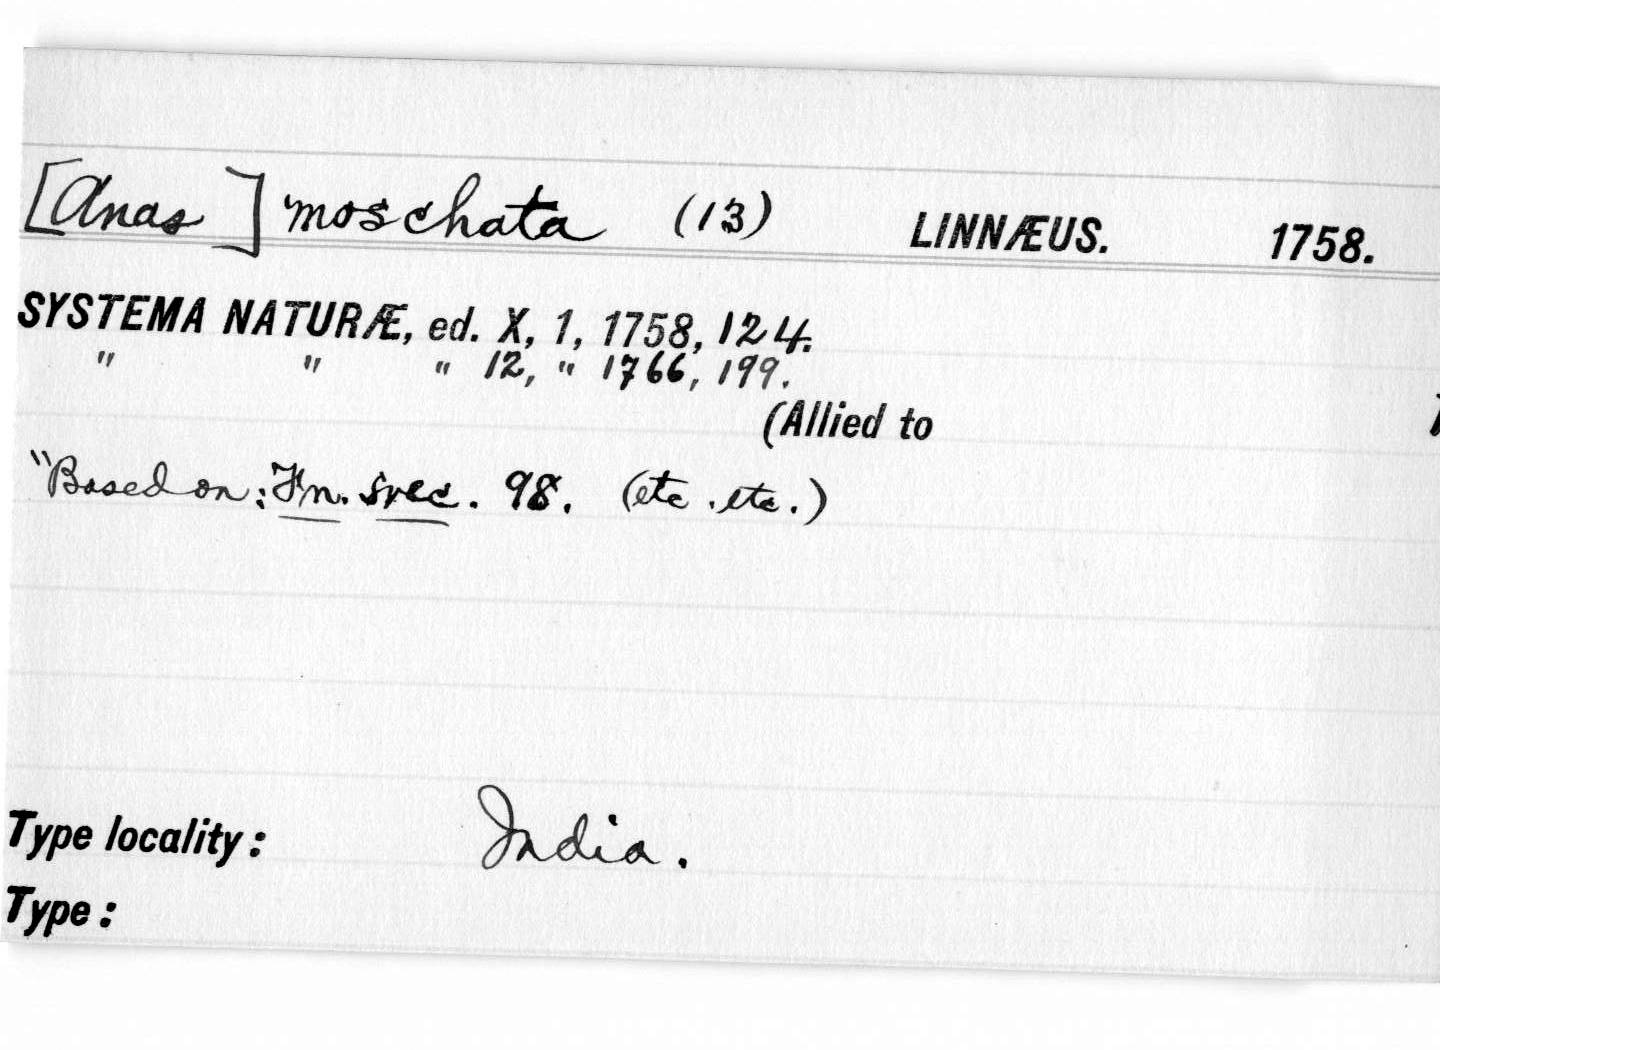 [Anas] moschata (13) LINNÆUS. 1758.
SYSTEMA NATURÆ, ed. X, 1, 1758, 124.
" " " 12, " 1766, 199.
(Allied to
"Based on: Fn. svec. 98. (etc. etc.)
Type locality: India.
Type: